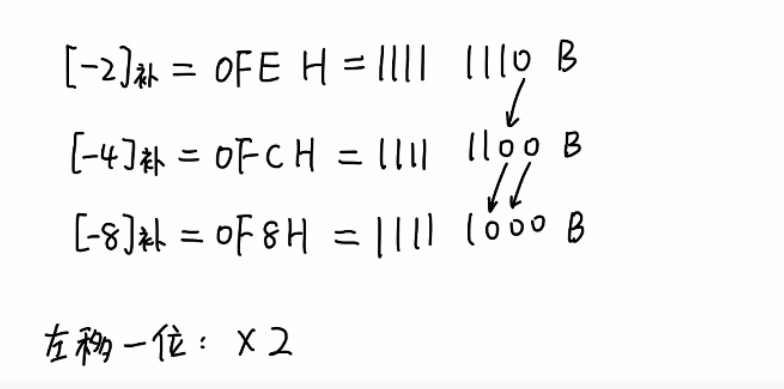 [-2]补 = 0FE H = 1111 1110 B
[-4]补 = 0FC H = 1111 1100 B
[-8]补 = 0F8H = 1111 1000 B
左移一位: ×2